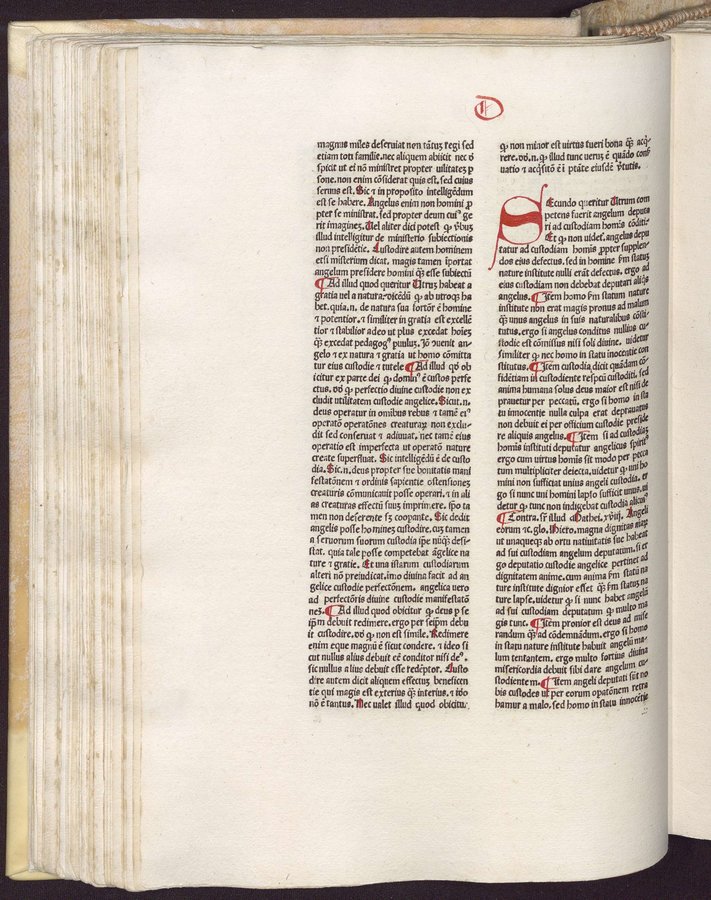 D
magnus miles deseruiat non tātuȝ regi sed
etiam toti familie. nec aliquem abiicit nec d̄
spicit ut ei nō ministret propter uilitateȝ ꝑ
sone. non enim cōsiderat quis est. sed cuius
seruus est. Sic ⁊ in proposito intelligēdum
est se habere. Angelus enim non homini ꝓ
pter se ministrat. sed propter deum cuiꝰ ge
rit imagineȝ. Uel aliter dici potest ꝙ ꝟbuȝ
illud intelligitur de ministerio subiectionis
non presidētie. Custodire autem hominem
etsi misterium dicat. magis tamen īportat
angelum presidere homini q̄ȝ esse subiectū
¶ Ad illud quod queritur Utruȝ habeat a
gratia uel a natura. dicēdū ꝙ ab utroqȝ ha
bet. quia. n. de natura sua fortior ē homine
⁊ potentior. ⁊ similiter in gratia est excellē
tior ⁊ stabilior adeo ut plus excedat hoīeȝ
q̄ȝ excedat pedagogꝰ puuluȝ. Iō ꝯuenit an
gelo ⁊ ex natura ⁊ gratia ut homo cōmitta
tur eius custodie ⁊ tutele ¶ Ad illud qd̓ ob
icitur ex parte dei ꝙ dominꝰ ē custos perfe
ctus. dd̓ ꝙ perfectio diuine custodie non ex
cludit utilitatem custodie angelice. Sicut. n.
deus operatur in omībus rebus ⁊ tamē eiꝰ
operatō operatōnes creaturaȝ non exclu
dit sed conseruat ⁊ adiuuat. nec tamē eius
operatio est imperfecta ut operatō nature
create superfluat. Sic intelligēdū ē de custo
dia. Sic. n. deus propter sue bonitatis mani
festatōnem ⁊ ordinis sapientie ostensioneȝ
creaturis cōmunicauit posse operari. ⁊ in ali
as creaturas effectū suuȝ imprimere. ip̄o ta
men non deserente sȝ coopante. Sic dedit
angelis posse homines custodire. cuȝ tamen
a seruorum suorum custodia ip̄e nūqȝ desi-
stat. quia tale posse competebat āgelice na
ture ⁊ gratie. Et una istarum custodiarum
alteri nō preiudicat. imo diuina facit ad an
gelice custodie perfectōnem. angelica uero
ad perfectōris diuine custodie manifestatō
neȝ. ¶ Ad illud quod obicitur ꝙ deus ꝑ se
ip̄m debuit redimere. ergo per seip̄m debu
it custodire. dd̓ ꝙ non est simile. Redimere
enim eque magnū ē sicut condere. ⁊ ideo si
cut nullus alius debuit eē conditor nisi deꝰ.
sic nullus alius debuit esse redēptor. Custo
dire autem dicit aliquem effectuȝ beneficen
tie qui magis est exterius q̄ȝ interius. ⁊ idō
nō ē tantus. Nec ualet illud quod obicitur
ꝙ non minor est uirtus tueri bona q̄ȝ acq̄-
rere. dd̓. n. ꝙ illud tunc ueruȝ ē quādo conṣ̄
uatio ⁊ acq̄sitō ē ī ptāte eiusdē ꝟtutis.
SEcundo queritur Utrum com
petens fuerit angelum deputa
ri ad custodiam homis cōditi
Et ꝙ non uidet̄. angelus depu
tatur ad custodiam homīs propter supplen-
dos eius defectus. sed in homine ẜm statuȝ
nature institute nulli erāt defectus. ergo ad
eius custodiam non debebat deputari aliq̄s
angelus. ¶ Item homo ẜm statum nature
institute non erat magis pronus ad malum
q̄ȝ unus angelus in suis naturalibus cōsti-
tutus. ergo si angelus conditus nullius cu-
stodie est cōmissus nisi soli diuine. uidetur
similiter ꝙ nec homo in statu inocentie con
stitutus. ¶ Item custodia dicit quādam con-
fidētiam in custodiente respectu custoditi. sed
anima humana solus deus maior est nisi de
prauetur per peccatū. ergo si homo in sta
tu innocentie nulla culpa erat deprauatus
non debuit ei per officium custodie preside
re aliquis angelus. ¶ Item si ad custodiaȝ
homīs instituti deputatur angelicus spiritꝰ
ergo cum uirtus homīs sit modo per pecca
tum multipliciter deiecta. uidetur ꝙ uni ho
mini non sufficiat unius angeli custodia. er
go si nunc uni homini lapso sufficit unus. ui
detur ꝙ tunc non indigebat custodia alicuiꝰ
¶ Contra. sr̄ illud Mathei. xviij. Angeli
eorum ⁊c. glo. Hiero. magna dignitas aīaȝ
ut unaqueqȝ ab ortu natiuitatis sue habeat
ad sui custodiam angelum deputatum. si er
go deputatio custodie angelice pertinet ad
dignitatem anime. cum anima ẜm statū na
ture institute dignior esset q̄ȝ ẜm statuȝ na
ture lapse. uidetur ꝙ si nunc habet angelū
ad sui custodiam deputatum ꝙ multo ma
gis tunc. ¶ Item pronior est deus ad mise
randum q̄ȝ ad cōdemnādum. ergo si homo
in statu nature institute habuit angelū ma-
lum tentantem. ergo multo fortius diuina
misericordia debuit sibi dare angelum cu-
stodientem. ¶ Item angeli deputati sūt no
bis custodes ut per eorum opatōnem retra
hamur a malo. sed homo in statu innocētie